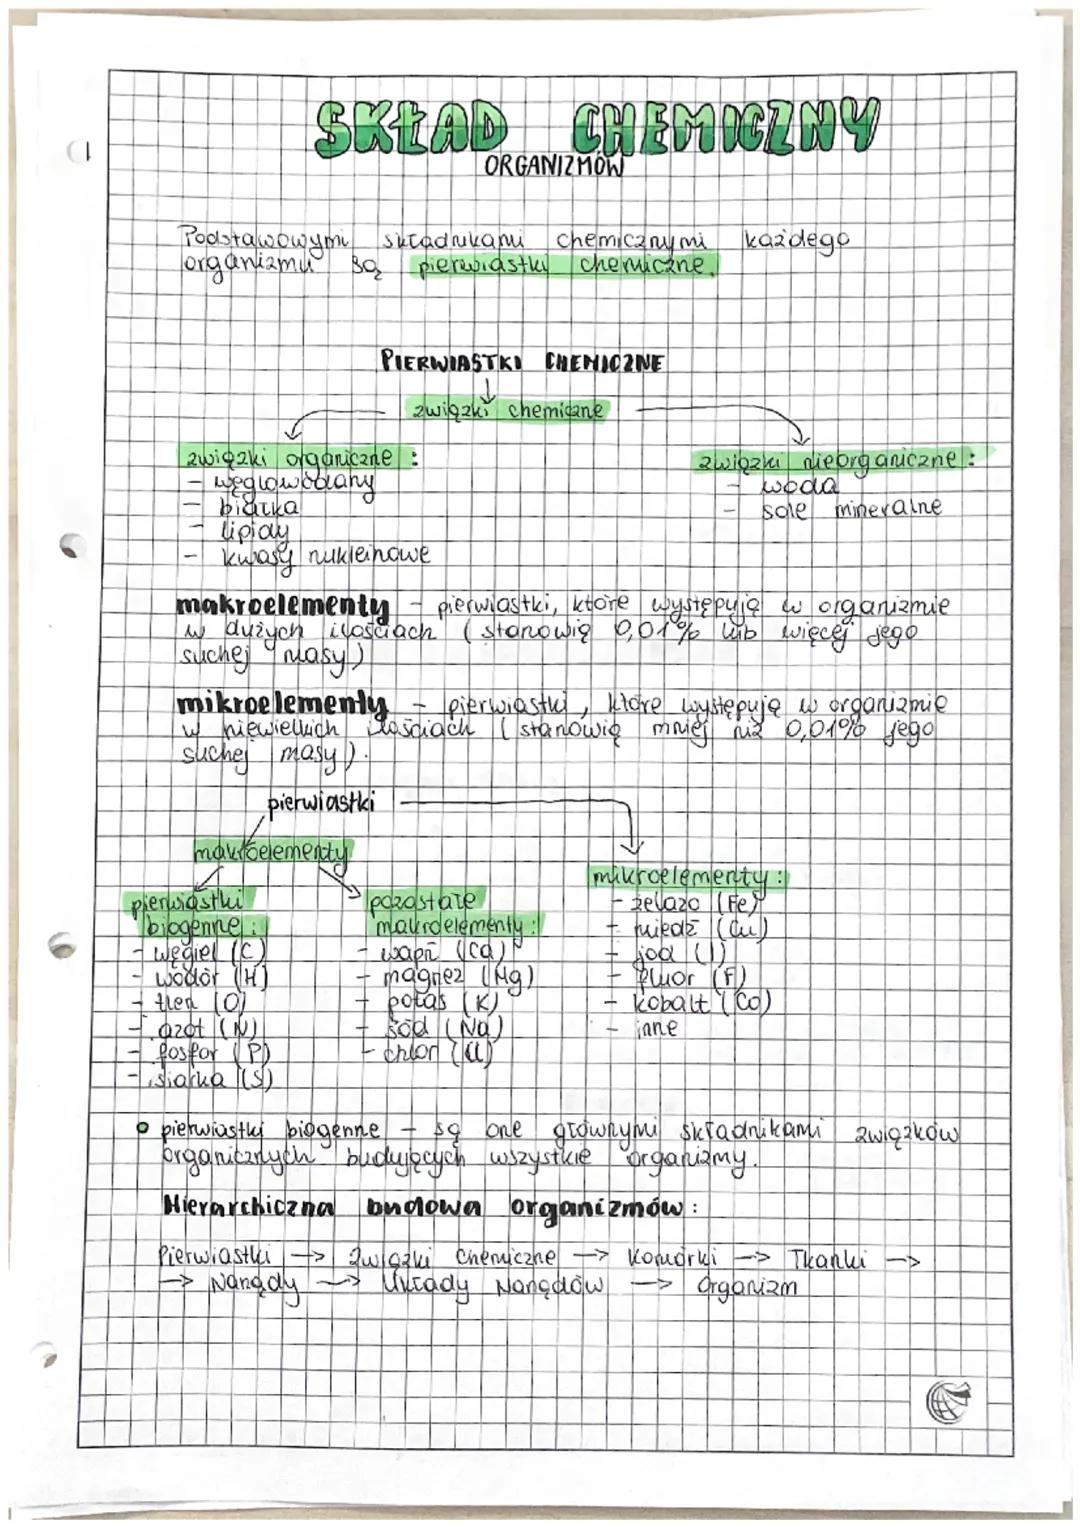 SKŁAD CHEMICZNY
ORGANIZMÓW
Podstawowymi składnikami chemicznymi każdego
organizmu są pierwiastki chemiczne.
PIERWIASTKI CHEMICZNE
związki chemiczne
związki organiczne :
- węglowodany
- białka
- lipidy
- kwasy nukleinowe
związki nieorganiczne :
- woda
- sole mineralne
makroelementy - pierwiastki, które występują w organizmie
w dużych ilościach (stanowią 0,01% lub więcej jego
suchej masy)
mikroelementy - pierwiastki, które występują w organizmie
w niewielkich ilościach (stanowią mniej niż 0,01% jego
suchej masy).
pierwiastki
makroelementy
pierwiastki
biogenne :
- węgiel (C)
- wodór (H)
- tlen (O)
- azot (N)
- fosfor (P)
- siarka (S)
pozostałe
makroelementy :
- wapń (Ca)
- magnez (Mg)
- potas (K)
- sód (Na)
- chlor (Cl)
mikroelementy :
- żelazo (Fe)
- miedź (Cu)
- jod (I)
- fluor (F)
- kobalt (Co)
- inne
• pierwiastki biogenne - są one głównymi składnikami związków
organicznych budujących wszystkie organizmy.
Hierarchiczna budowa organizmów :
Pierwiastki → Związki chemiczne → Komórki → Tkanki →
→ Narządy → Układy Narządów → Organizm